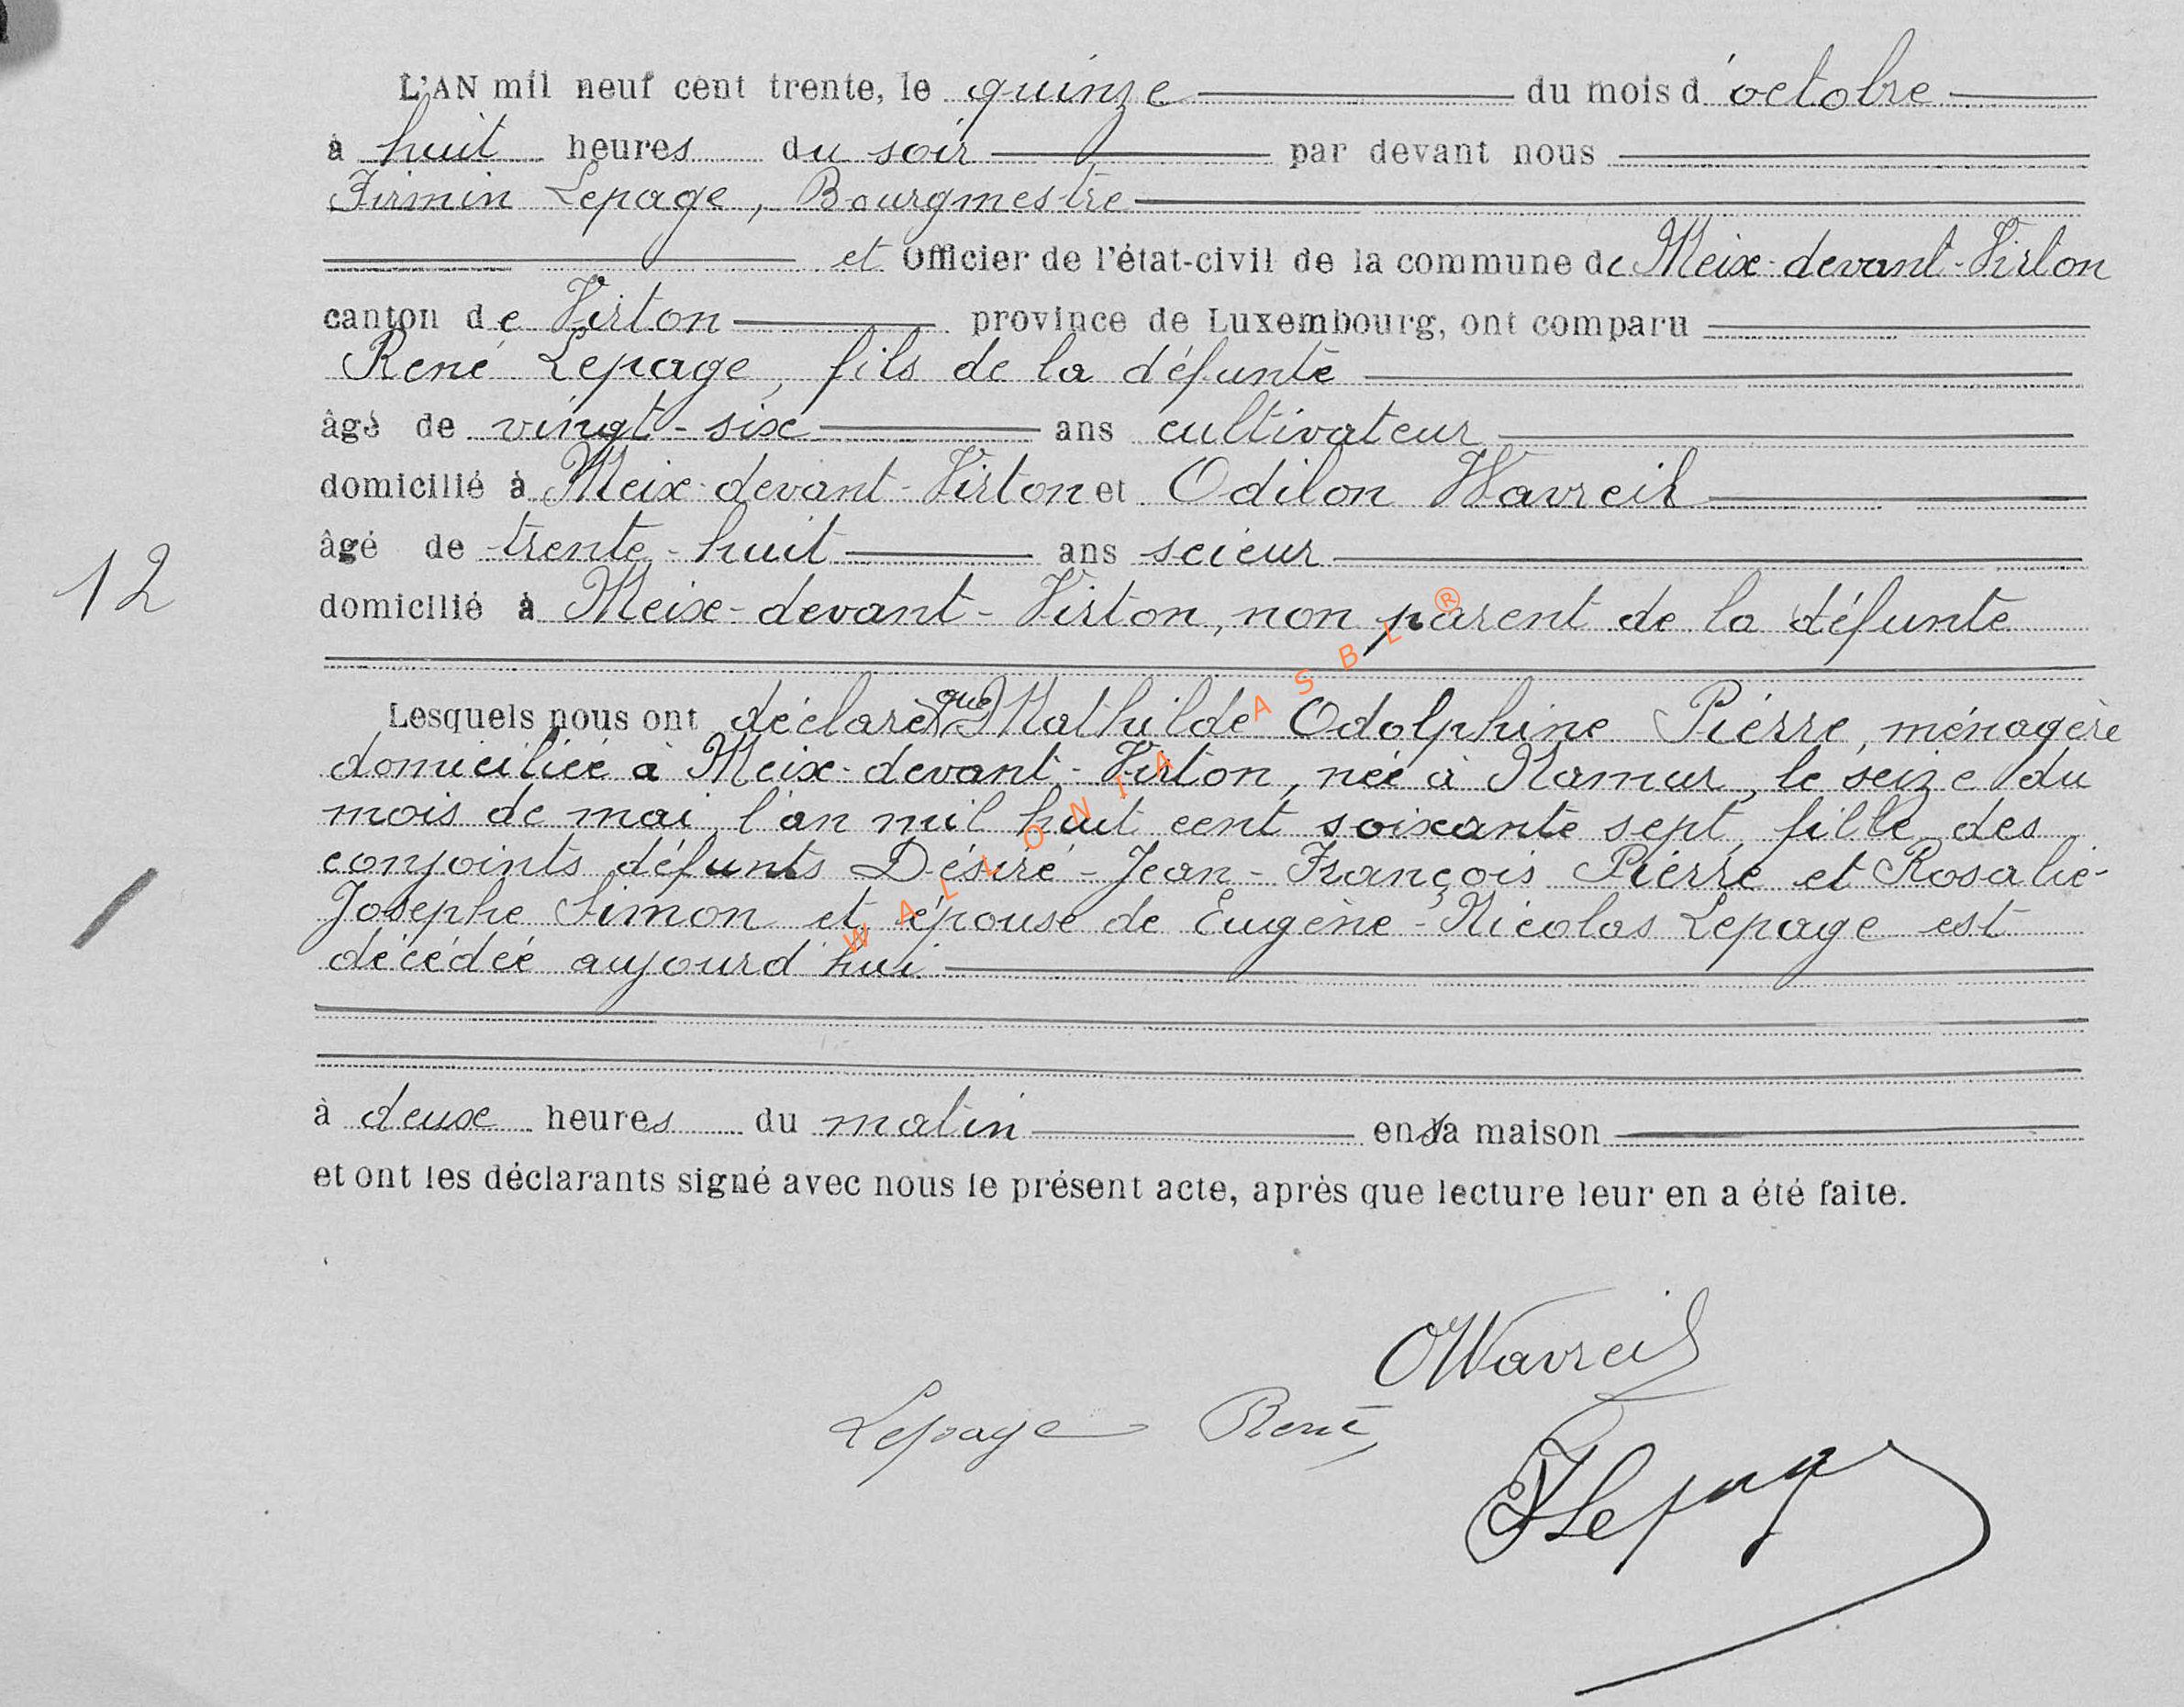 L'AN mil neuf cent trente, le quinze du mois d'octobre
à huit heures du soir par devant nous
Firmin Lepage, Bourgmestre
et Officier de l'état-civil de la commune de Meix-devant-Virton
canton de Virton province de Luxembourg, ont comparu
René Lepage, fils de la défunte
âgé de vingt-six ans cultivateur
domicilié à Meix-devant-Virton et Odilon Wavreil
âgé de trente-huit ans scieur
12
domicilié à Meix-devant-Virton, non parent de la défunte
Lesquels nous ont déclaré que Mathilde Odolphine Pierre, ménagère
domiciliée à Meix-devant-Virton, née à Namur, le seize du
mois de mai, l'an mil huit cent soixante sept, fille des
conjoints défunts Désiré-Jean-François Pierre et Rosalie-
Josephe Simon et épouse de Eugène-Nicolas Lepage est
décédée aujourd'hui
à deux heures du matin en sa maison
et ont les déclarants signé avec nous le présent acte, après que lecture leur en a été faite.
OWavreil
Lepage René
FLepage
WALLONIA ASBL ®